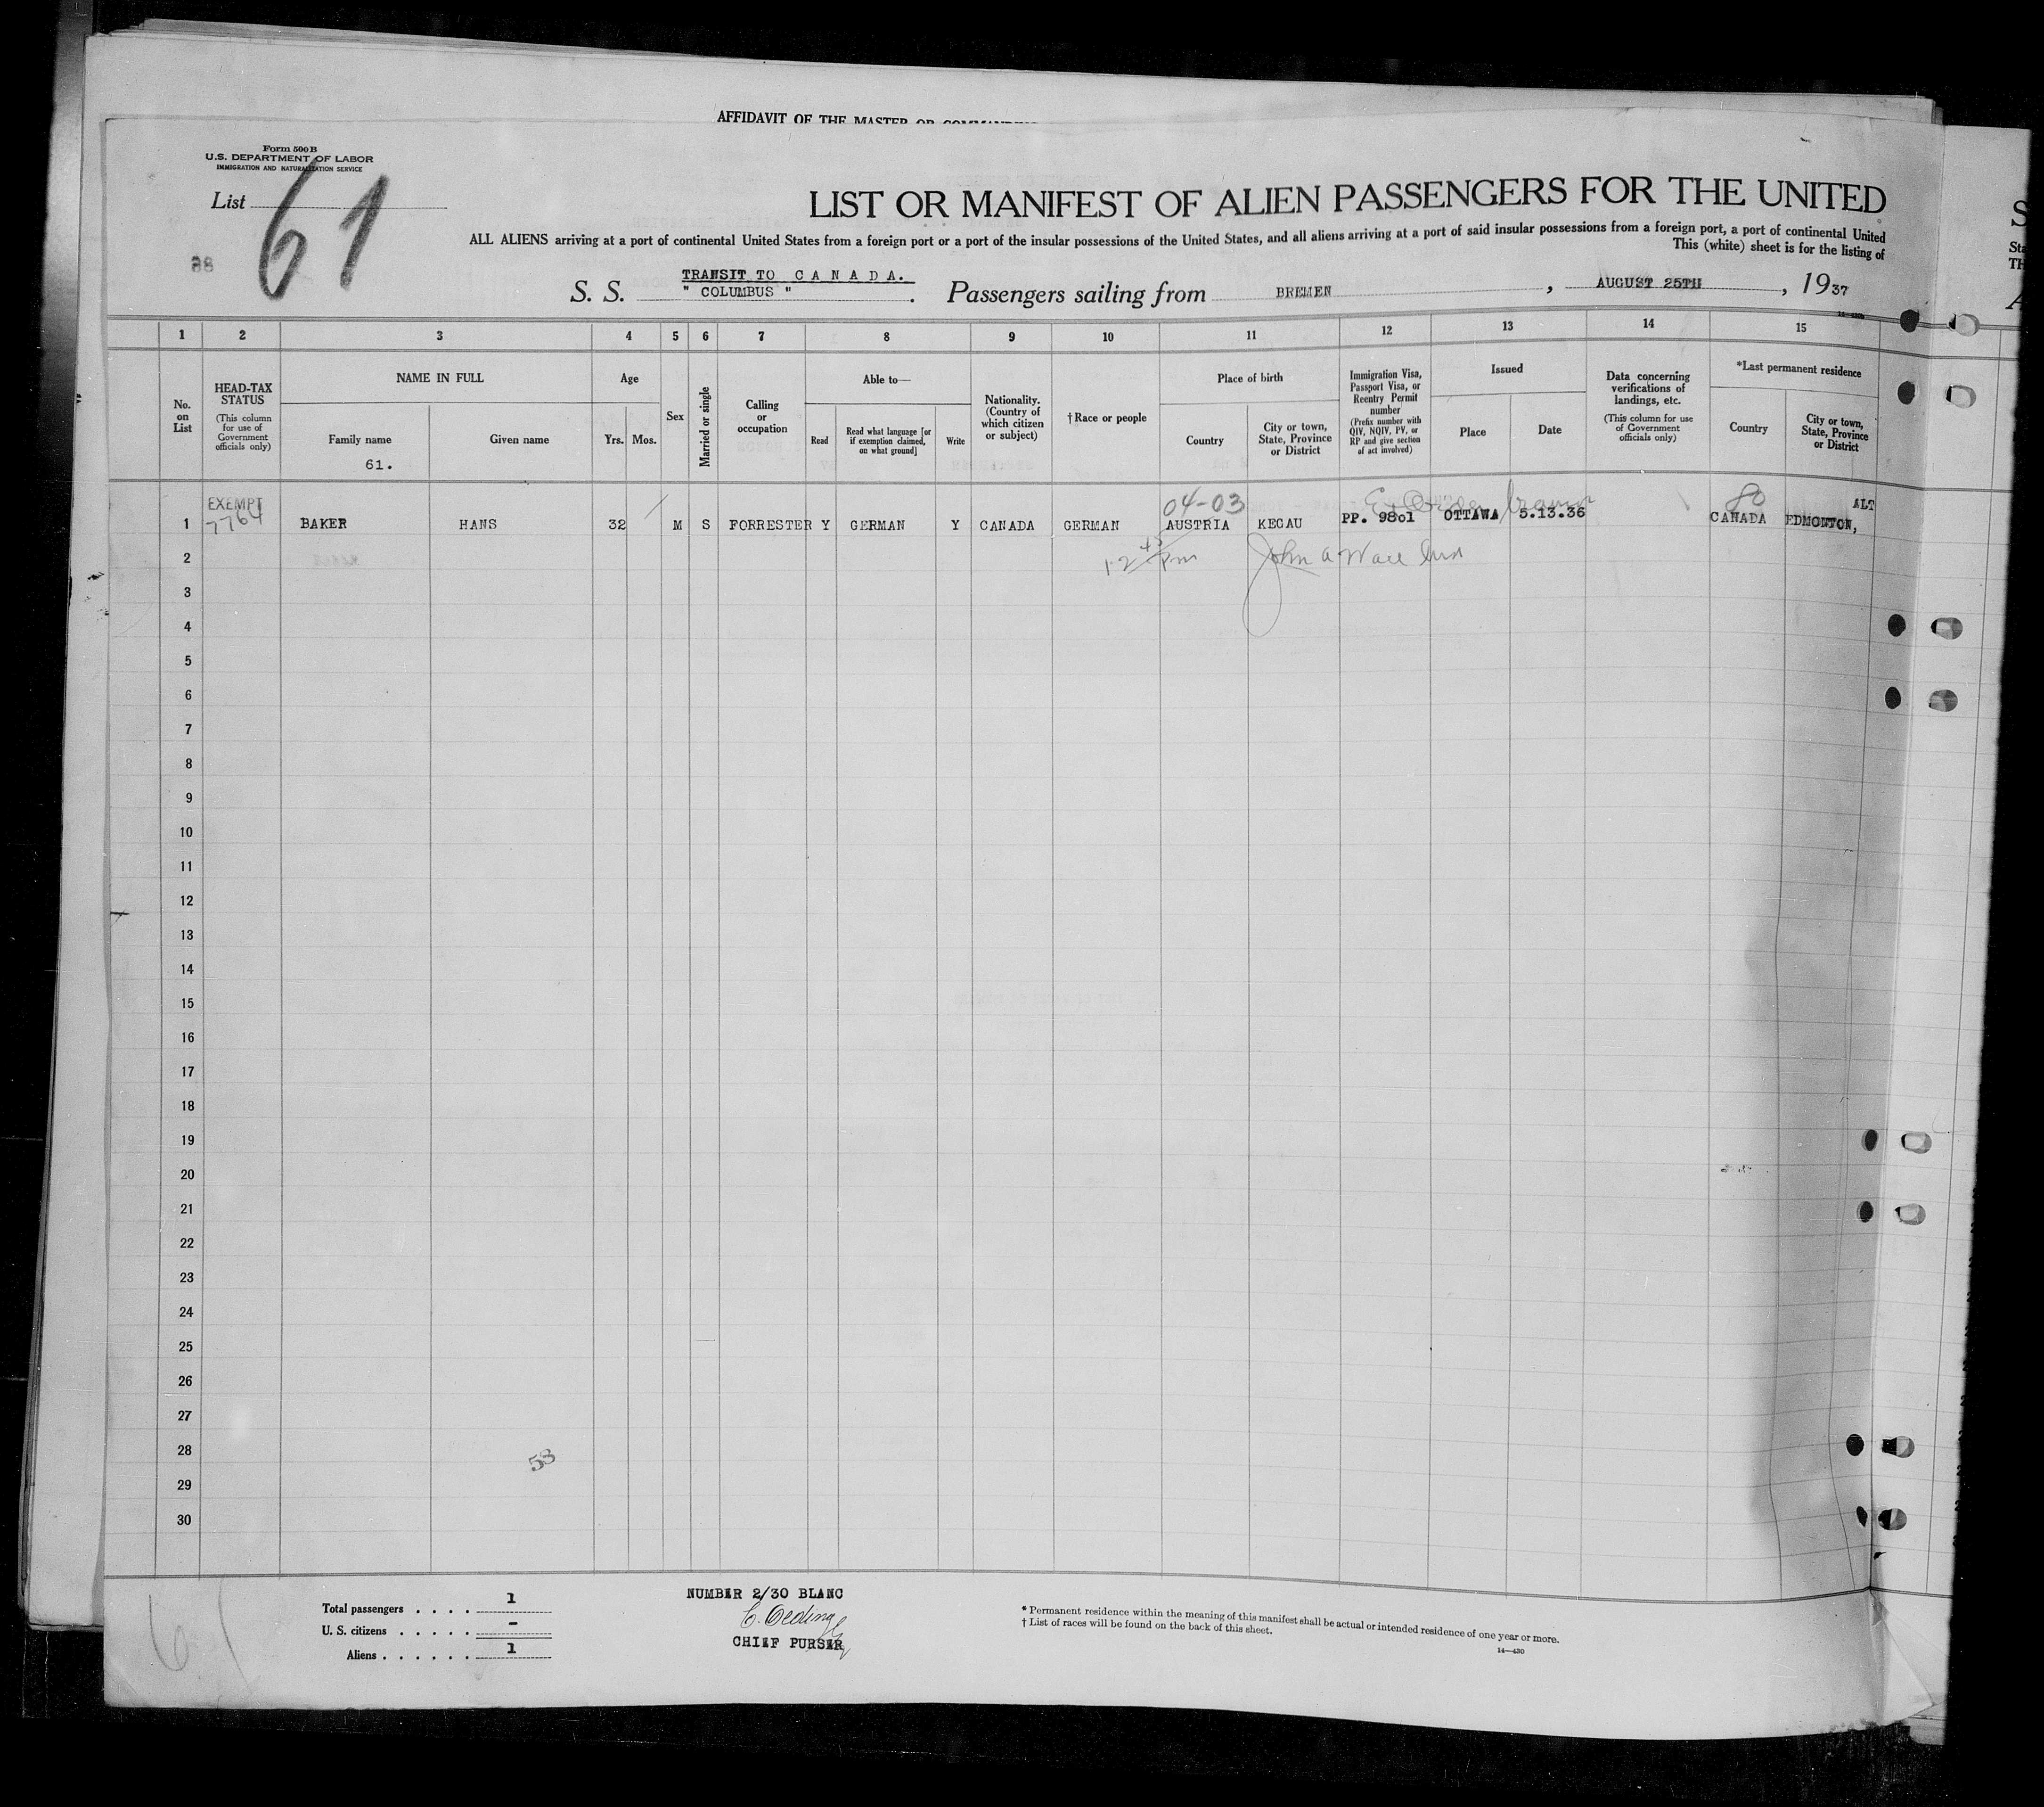 AFFIDAVIT OF THE MASTER OR
Form 500 B
U.S. DEPARTMENT OF LABOR
IMMIGRATION AND NATURALIZATION SERVICE
List 61
LIST OR MANIFEST OF ALIEN PASSENGERS FOR THE UNITED
ALL ALIENS arriving at a port of continental United States from a foreign port or a port of the insular possessions of the United States, and all aliens arriving at a port of said insular possessions from a foreign port, a port of continental United
This (white) sheet is for the listing of
88
TRANSIT TO C A N A D A.
S. S. " COLUMBUS ". Passengers sailing from BREMEN, AUGUST 25TH, 1937
1 2 3 4 5 6 7 8 9 10 11 12 13 14 15
No. on List
HEAD-TAX STATUS
(This column for use of Government officials only)
NAME IN FULL
Family name
61.
Given name
Age
Yrs. Mos.
Sex
Married or single
Calling or occupation
Able to—
Read
Read what language [or if exemption claimed, on what ground]
Write
Nationality. (Country of which citizen or subject)
†Race or people
Place of birth
Country
City or town, State, Province or District
Immigration Visa, Passport Visa, or Reentry Permit number
(Prefix number with QIV, NQIV, PV, or RP and give section of act involved)
Issued
Place
Date
Data concerning verifications of landings, etc.
(This column for use of Government officials only)
*Last permanent residence
Country
City or town, State, Province or District
EXEMPT 04-03 80 ALT
1 7764 BAKER HANS 32 M S FORRESTER Y GERMAN Y CANADA GERMAN AUSTRIA KEGAU PP. 9801 OTTAWA 5.13.36 CANADA EDMONTON,
2 12 45 pm John A
3
4
5
6
7
8
9
10
11
12
13
14
15
16
17
18
19
20
21
22
23
24
25
26
27
28
53
29
30
Total passengers . . . . 1
U. S. citizens . . . . . -
Aliens . . . . . . 1
NUMBER 2/30 BLANC
CHIEF PURSER
* Permanent residence within the meaning of this manifest shall be actual or intended residence of one year or more.
† List of races will be found on the back of this sheet.
14—430
61